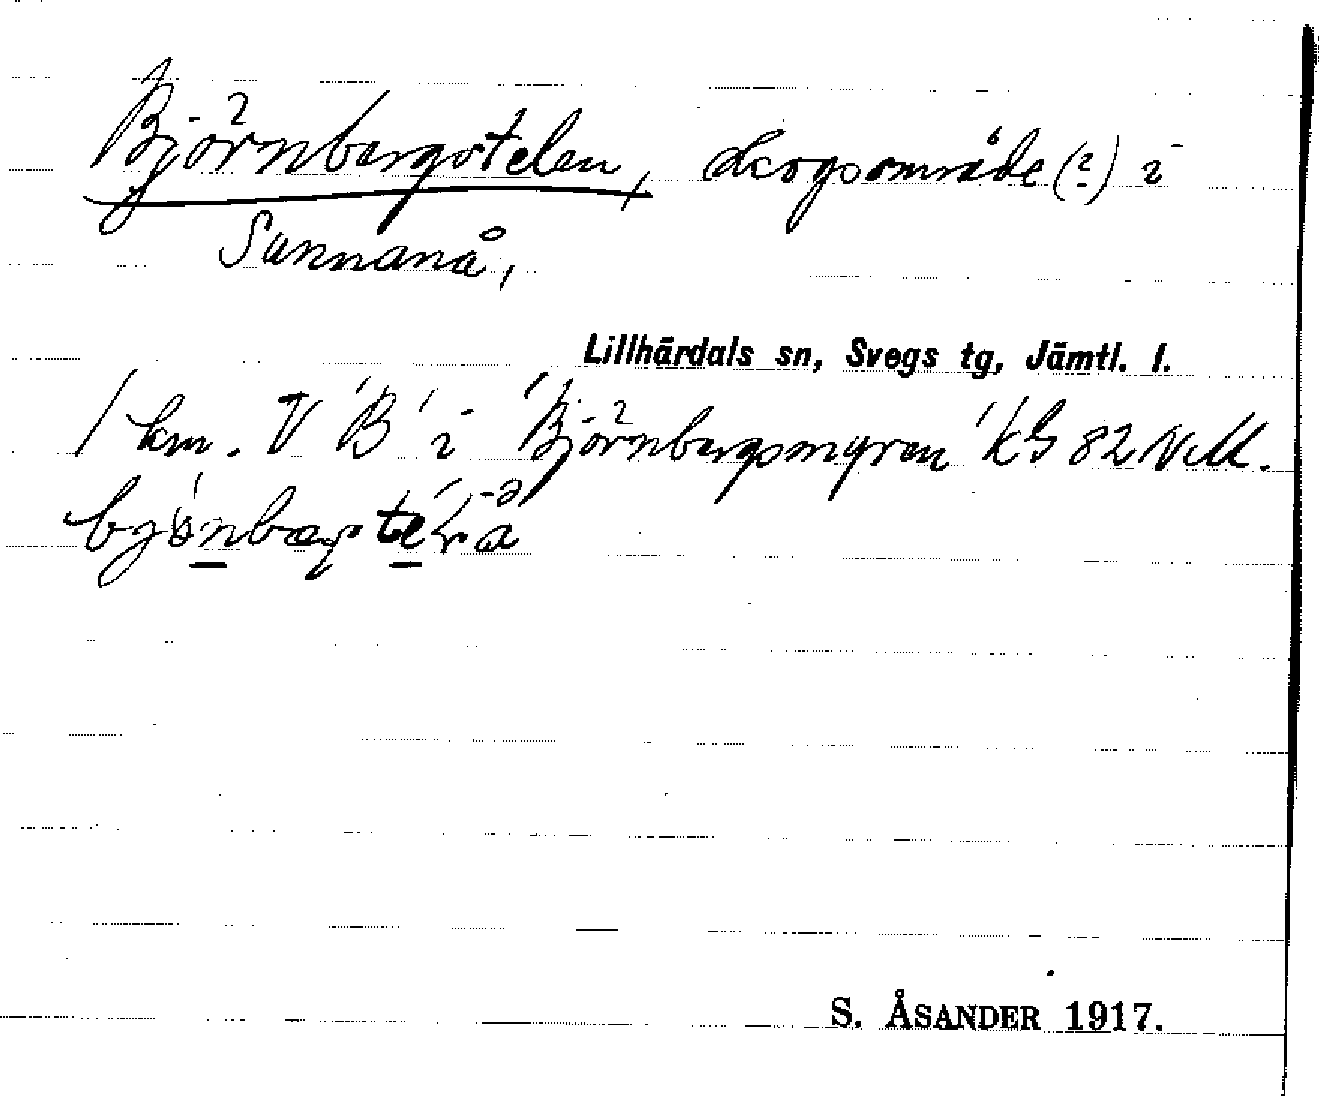 Björnbergstelen, skogsområde (?) i
Sunnanå,
Lillhärdals sn, Svegs tg, Jämtl. l.
1 km. V 'B' i 'Björnbergsmyren' kG 82 NM.
S. ÅSANDER 1917.